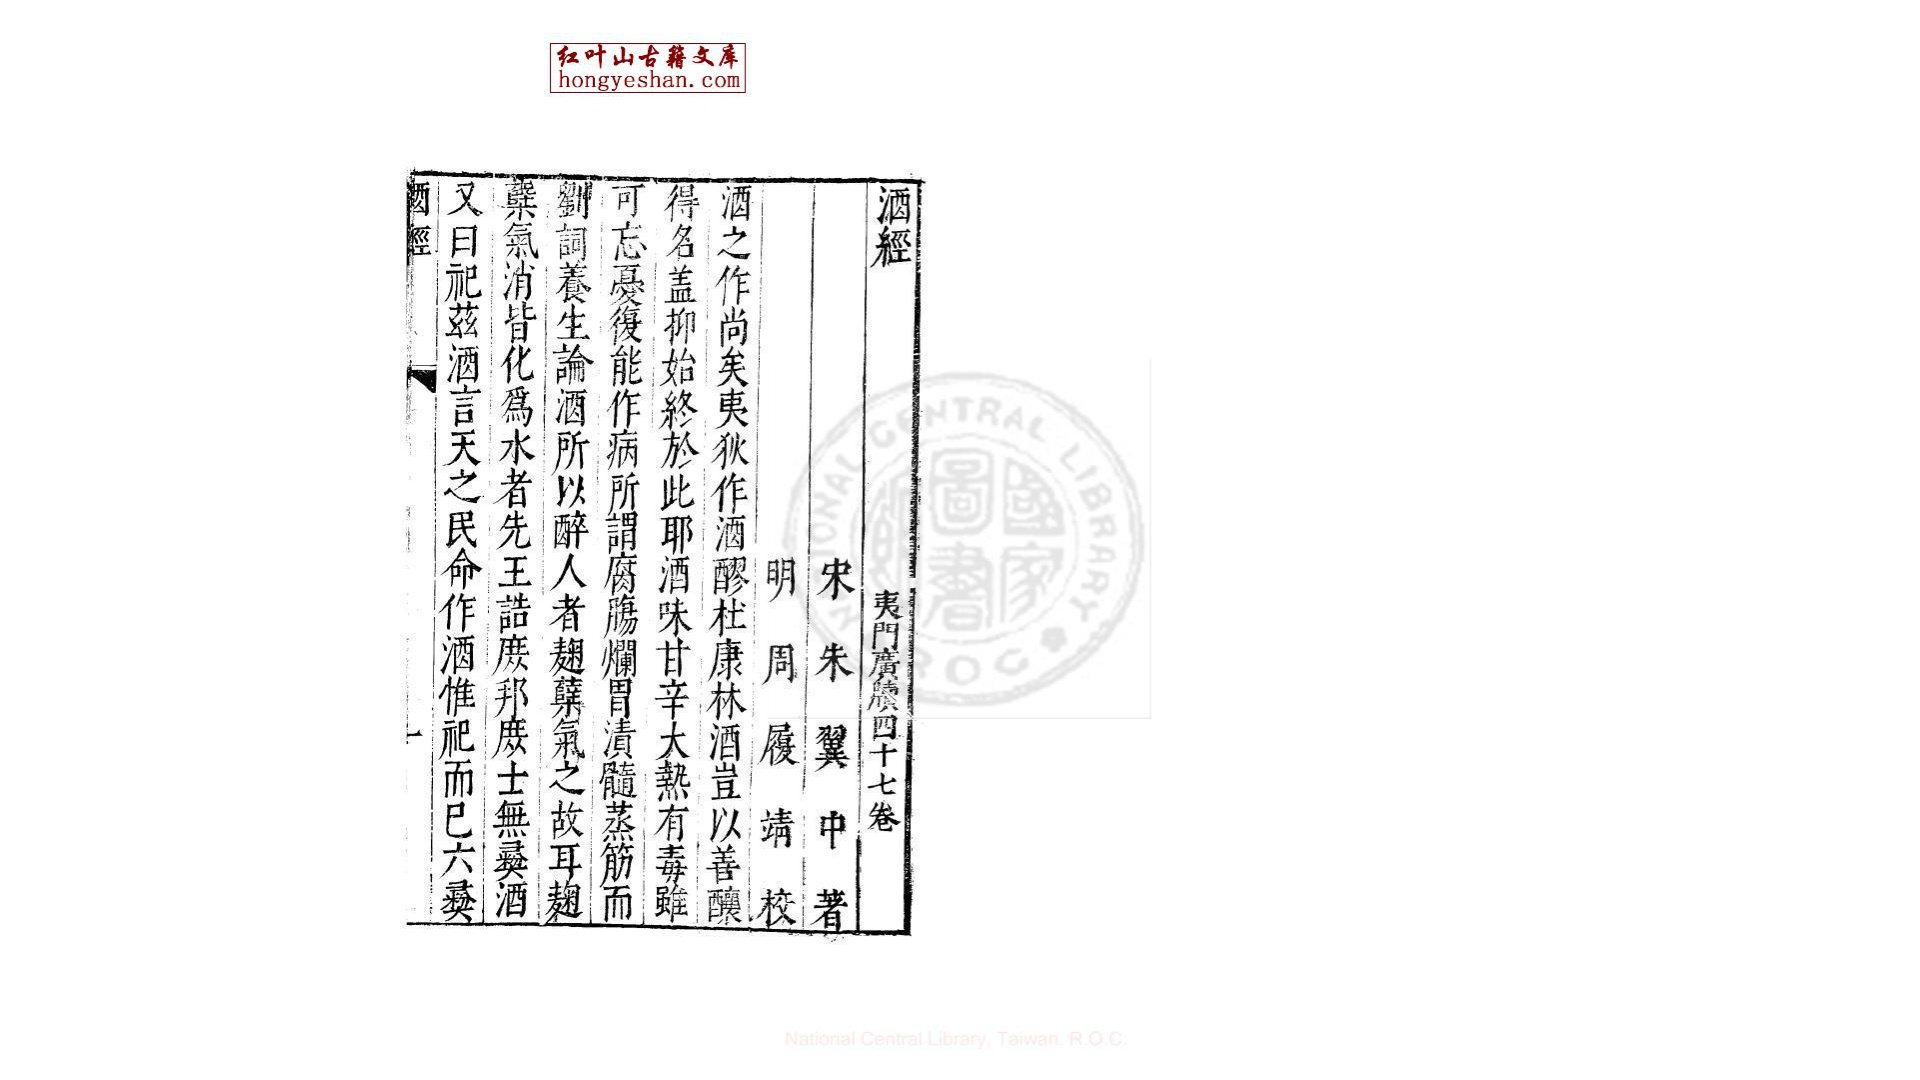 红叶山古籍文库
hongyeshan.com
酒經
夷門廣牘四十七卷
宋朱翼中著
明周履靖校
酒之作尚矣夷狄作酒醪杜康林酒豈以善釀
得名盖抑始終於此耶酒味甘辛大熱有毒雖
可忘憂復能作病所謂腐膓爛胃漬髓蒸筋而
劉詞養生論酒所以醉人者麹蘖氣之故耳麹
蘖氣消皆化爲水者先王誥庶邦庶士無彛酒
又曰祀茲酒言天之民命作酒惟祀而巳六彛
酒經
一
NATIONAL CENTRAL LIBRARY R.O.C
國家圖書館
National Central Library, Taiwan, R.O.C